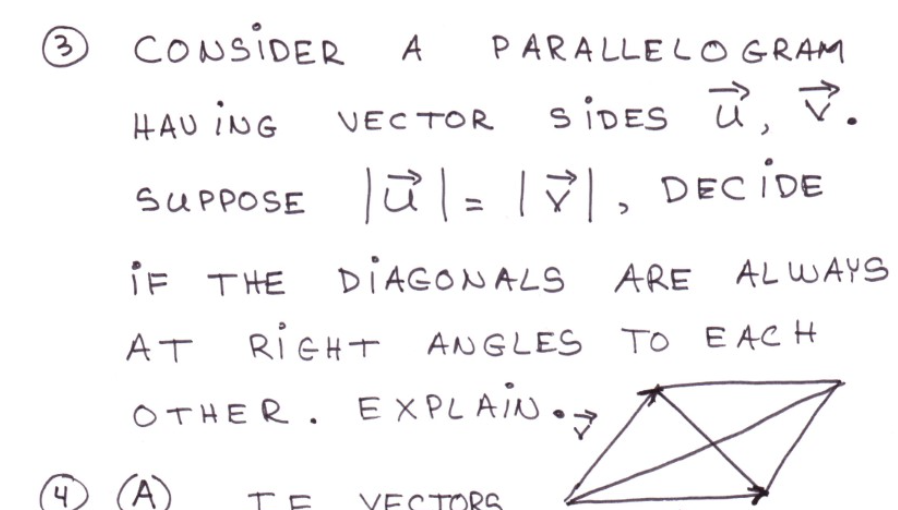 ③ CONSIDER A PARALLELOGRAM
HAVING VECTOR SIDES u⃗, v⃗.
SUPPOSE |u⃗| = |v⃗|, DECIDE
IF THE DIAGONALS ARE ALWAYS
AT RIGHT ANGLES TO EACH
OTHER. EXPLAIN.
v⃗
④ (A) IF VECTORS